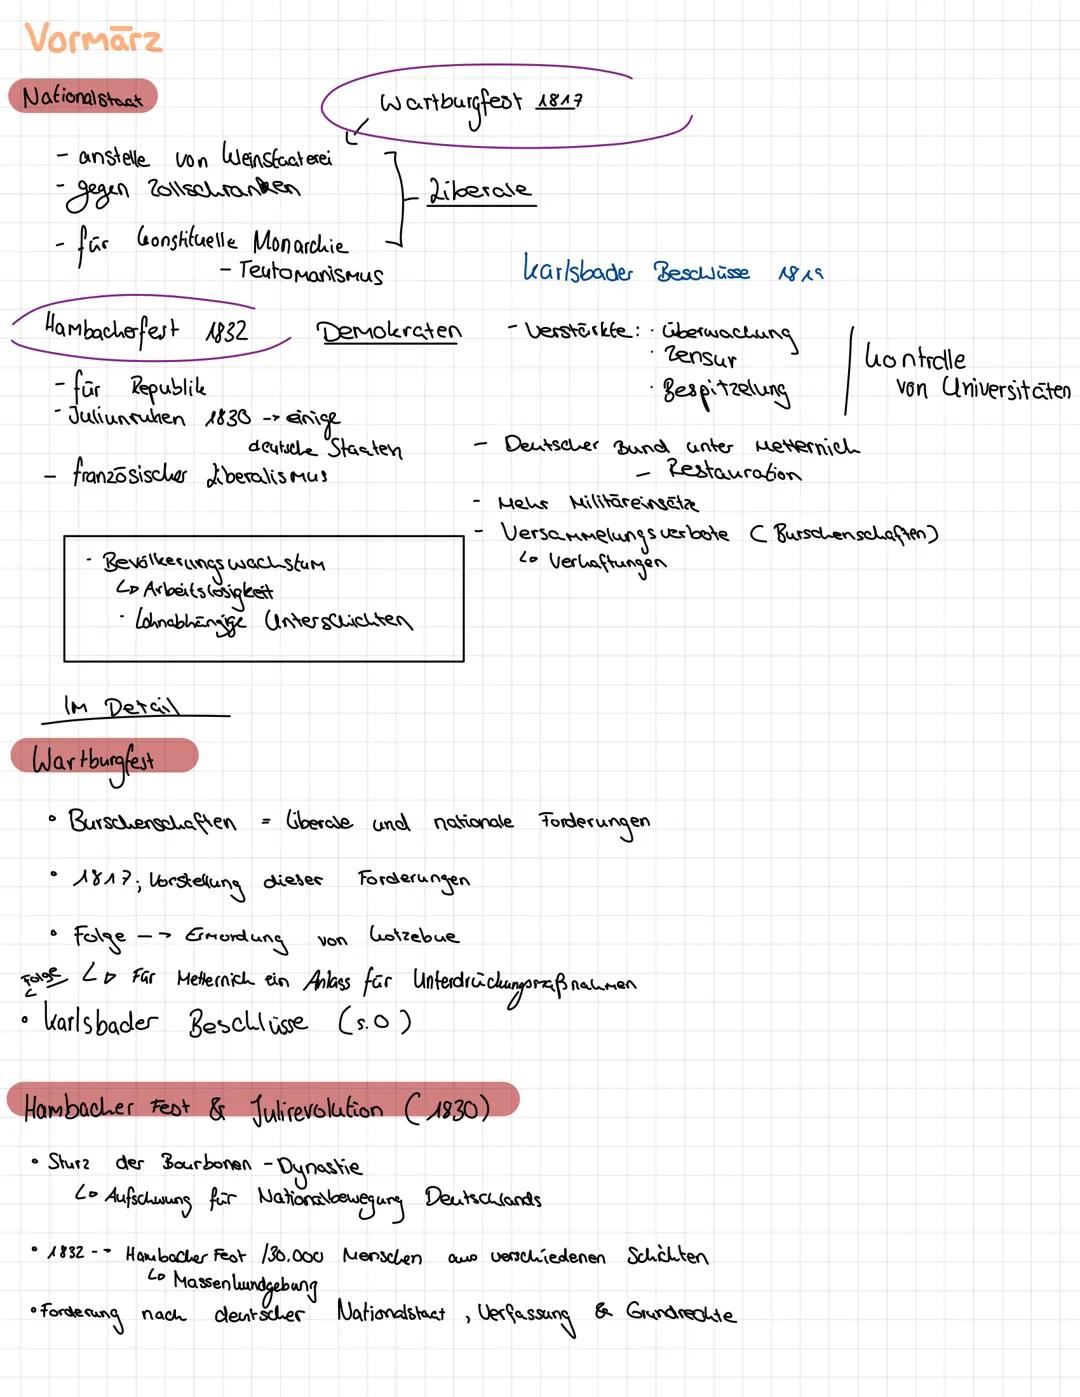 Vormärz
Nationalstaat
Wartburgfest 1817
- anstelle von Kleinstaaterei
- gegen Zollschranken
Liberale
- für konstituelle Monarchie
- Teutomanismus
Karlsbader Beschlüsse 1819
Hambacherfest 1832
Demokraten
- für Republik
- Juliunruhen 1830 -> einige
deutsche Staaten
- französischer Liberalismus
- Verstärkte: · Überwachung
· Zensur
· Bespitzelung
Kontrolle
von Universitäten
- Deutscher Bund unter Metternich
- Restauration
- Mehr Militäreinsätze
- Versammelungsverbote (Burschenschaften)
↳ Verhaftungen
· Bevölkerungswachstum
↳ Arbeitslosigkeit
· Lohnabhängige Unterschichten
Im Detail
Wartburgfest
• Burschenschaften = liberale und nationale Forderungen
• 1817; Vorstellung dieser Forderungen
• Folge --> Ermordung von Kotzebue
Folge ↳ Für Metternich ein Anlass für Unterdrückungsmaßnahmen
• Karlsbader Beschlüsse (s.O)
Hambacher Fest & Julirevolution (1830)
• Sturz der Bourbonen-Dynastie
↳ Aufschwung für Nationalbewegung Deutschlands
• 1832 -- Hambacher Fest /30.000 Menschen aus verschiedenen Schichten
↳ Massenkundgebung
• Forderung nach deutscher Nationalstaat, Verfassung & Grundrechte